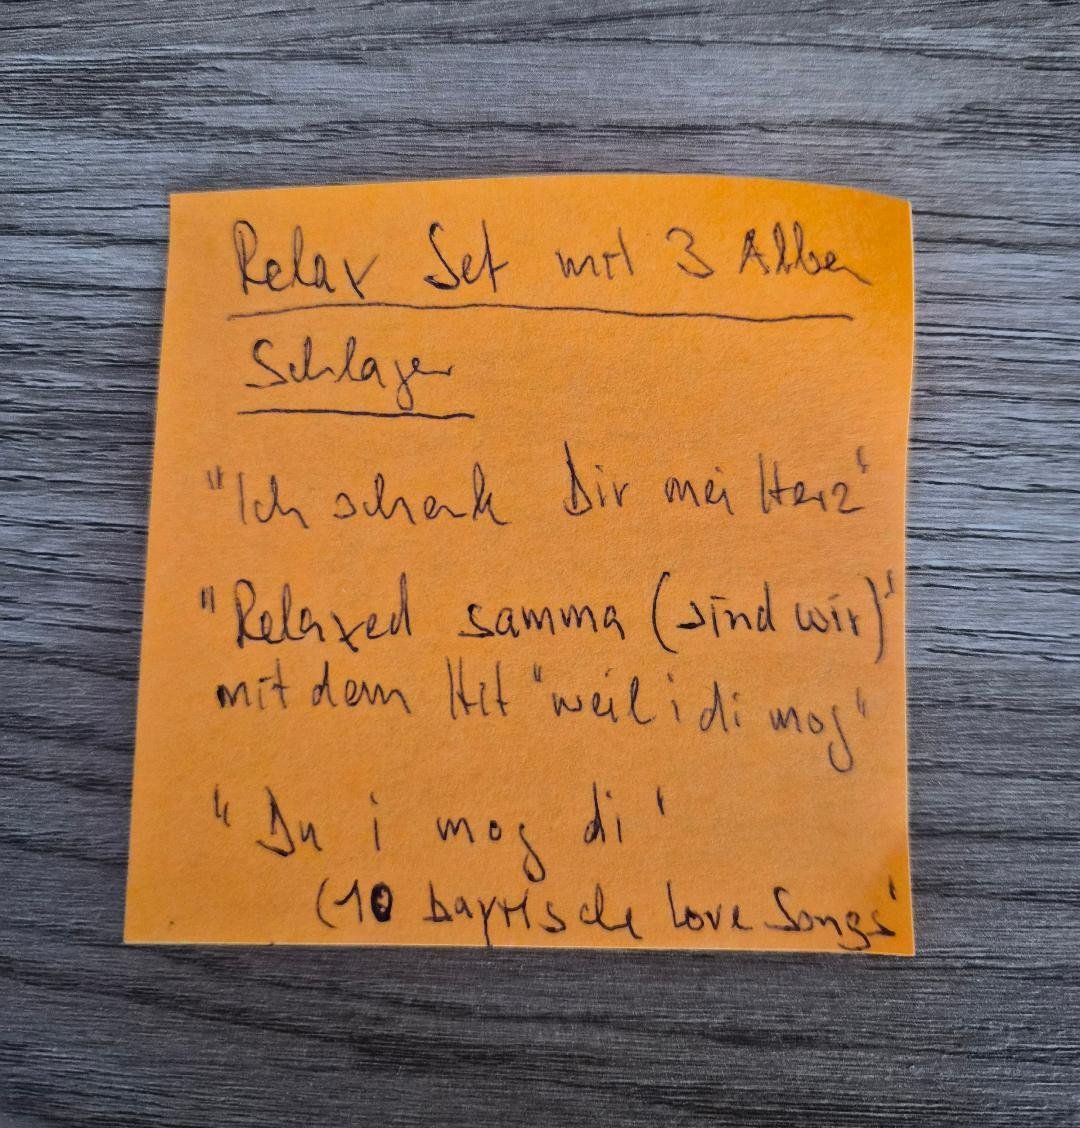 Relax Set mit 3 Alben
Schlager
"Ich schenk Dir mei Herz"
"Relaxed samma (sind wir)"
mit dem Hit "weil i di mog"
"Du i mog di"
(10 bayrische Love Songs